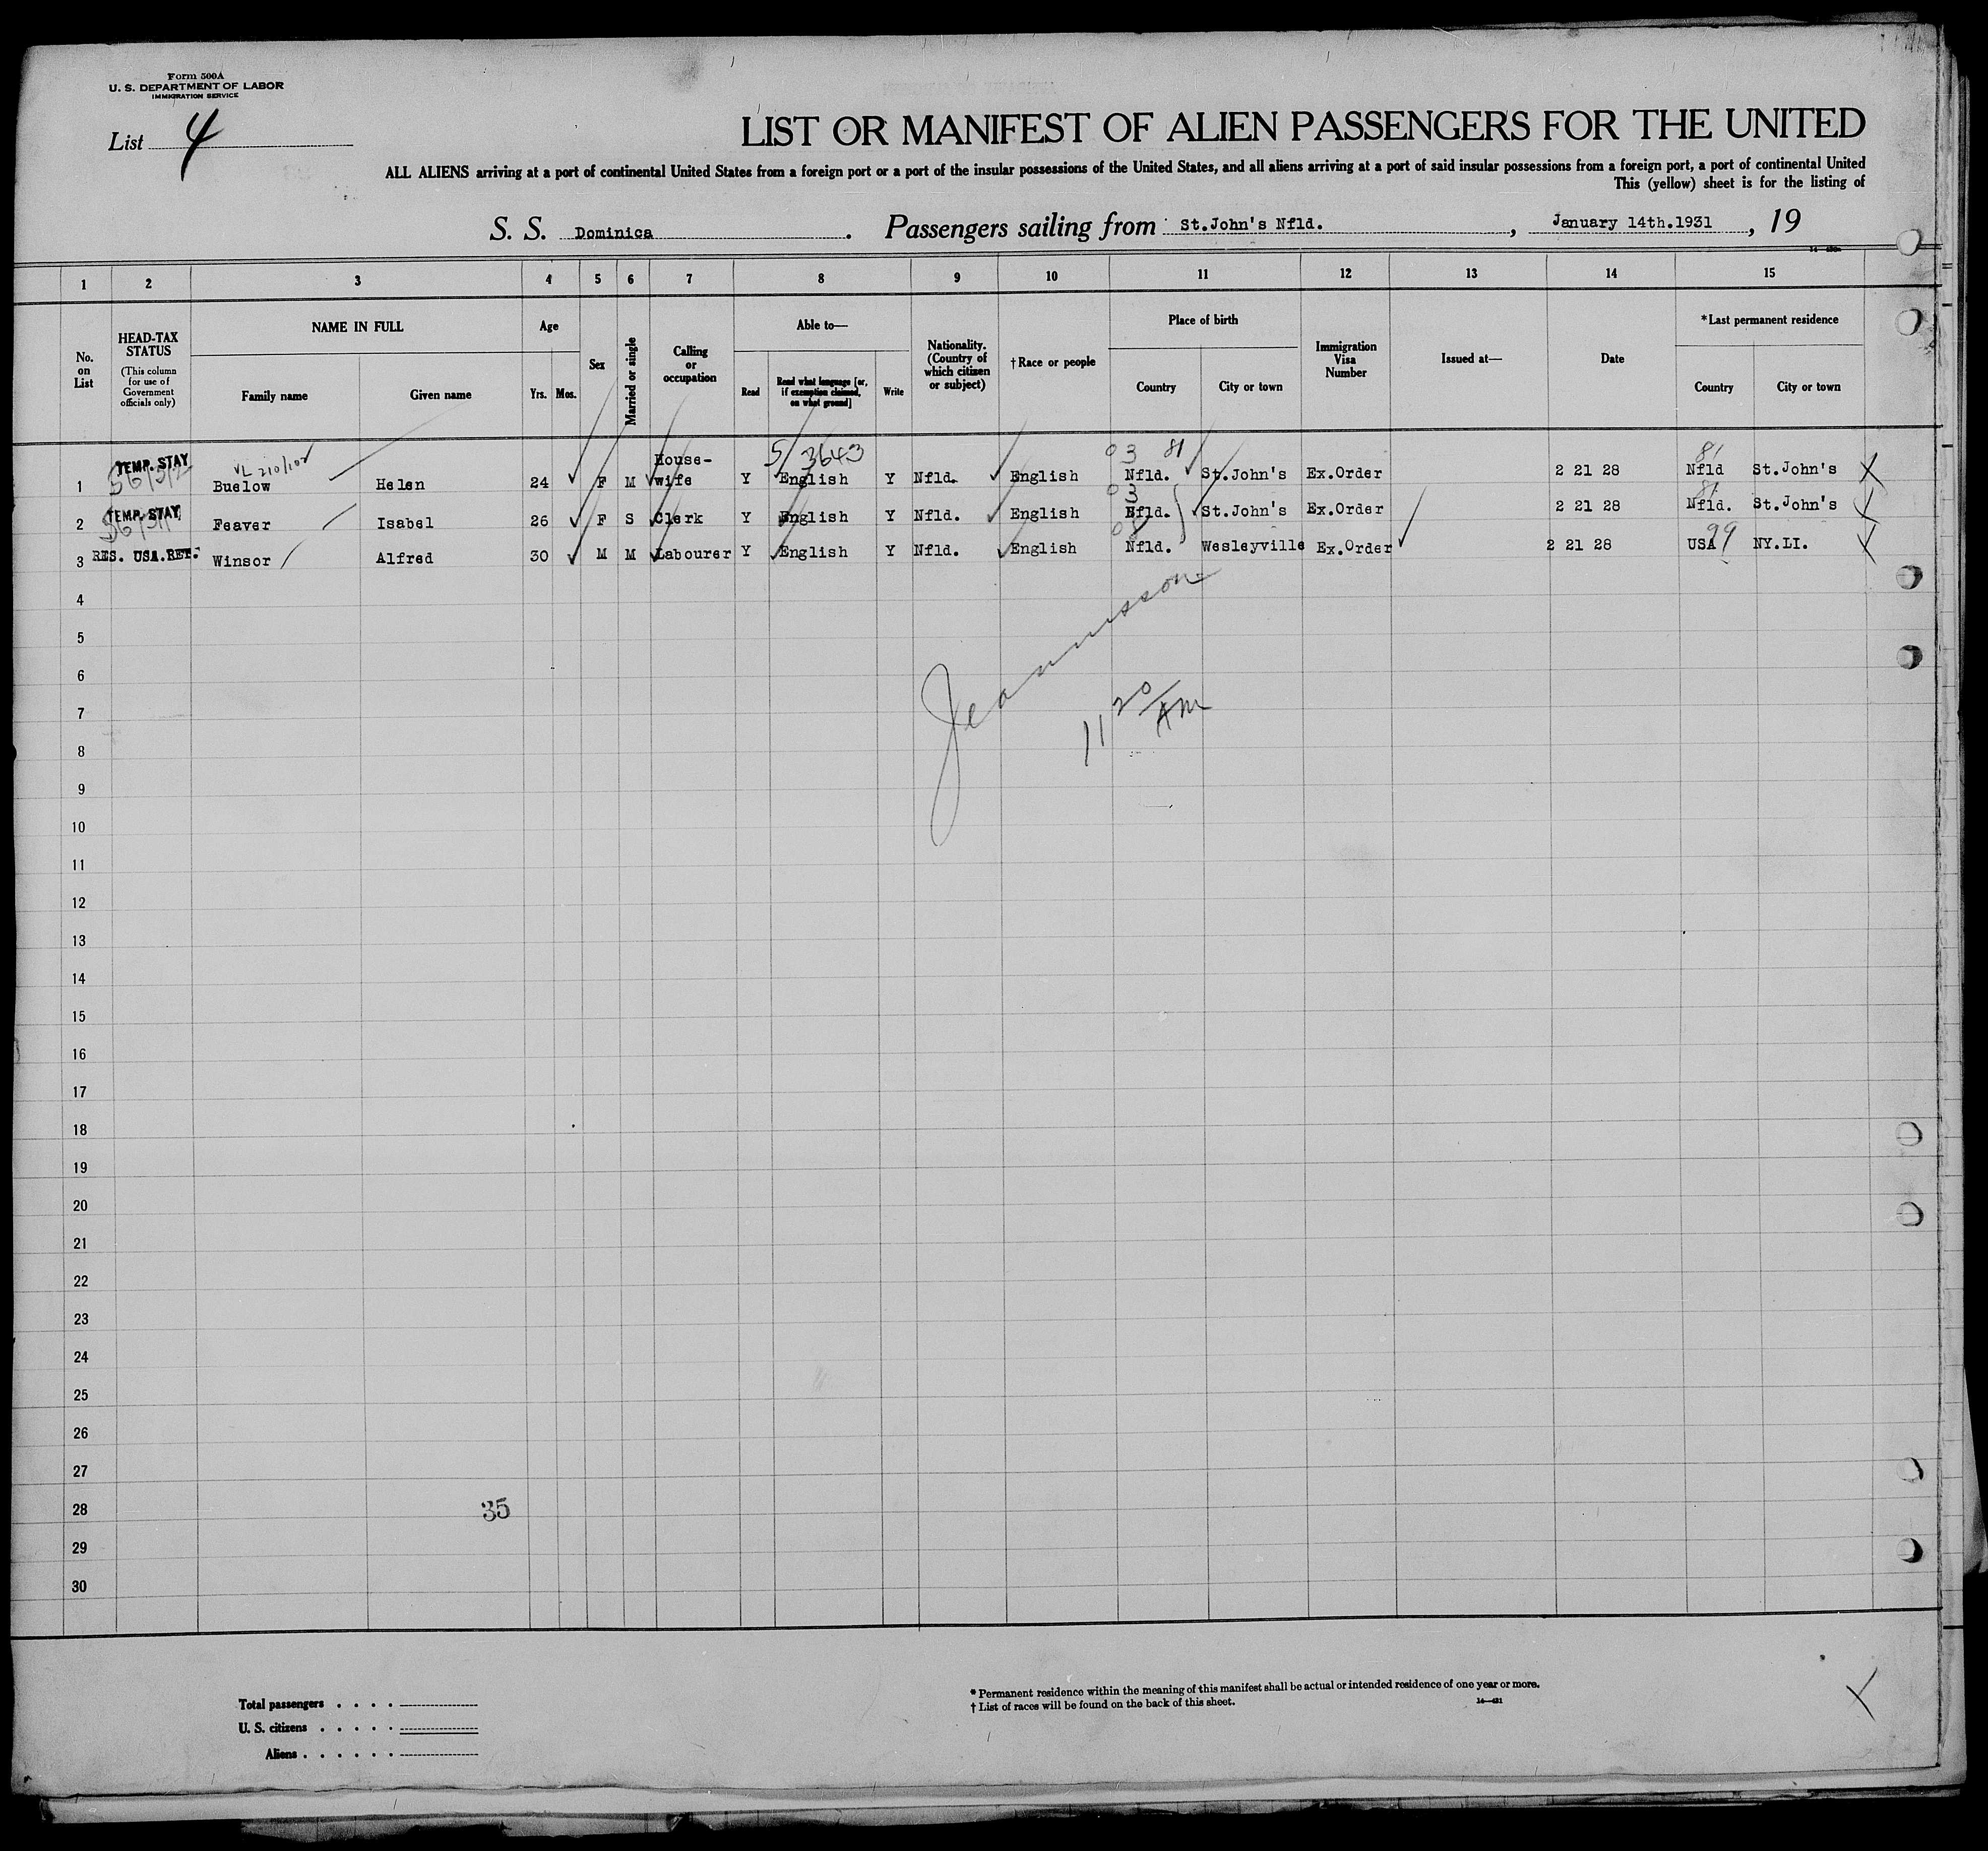 Form 500A
U. S. DEPARTMENT OF LABOR
IMMIGRATION SERVICE
List 4
LIST OR MANIFEST OF ALIEN PASSENGERS FOR THE UNITED
ALL ALIENS arriving at a port of continental United States from a foreign port or a port of the insular possessions of the United States, and all aliens arriving at a port of said insular possessions from a foreign port, a port of continental United
This (yellow) sheet is for the listing of
S. S. Dominica. Passengers sailing from St.John's Nfld., January 14th.1931, 19
1 2 3 4 5 6 7 8 9 10 11 12 13 14 15
No. on List
HEAD-TAX STATUS (This column for use of Government officials only)
NAME IN FULL
Family name Given name
Age
Yrs. Mos.
Sex
Married or single
Calling or occupation
Able to—
Read
Read what language [or, if exemption claimed, on what ground]
Write
Nationality. (Country of which citizen or subject)
† Race or people
Place of birth
Country City or town
Immigration Visa Number
Issued at—
Date
*Last permanent residence
Country City or town
5/3643 03 81 81
1 TEMP. STAY VL 210/102 Buelow Helen 24 F M House-wife Y English Y Nfld. English Nfld. St.John's Ex.Order 2 21 28 Nfld St.John's X
03 81
2 TEMP. STAY Feaver Isabel 26 F S Clerk Y English Y Nfld. English Nfld. St.John's Ex.Order 2 21 28 Nfld. St.John's X
08 99
3 RES. USA.RET. Winsor Alfred 30 M M Labourer Y English Y Nfld. English Nfld. Wesleyville Ex.Order 2 21 28 USA NY.LI. X
4
5
6
7
11 20/AM
8
9
10
11
12
13
14
15
16
17
18
19
20
21
22
23
24
25
26
27
28
35
29
30
Total passengers
U. S. citizens
Aliens
* Permanent residence within the meaning of this manifest shall be actual or intended residence of one year or more.
† List of races will be found on the back of this sheet.
14—431
X